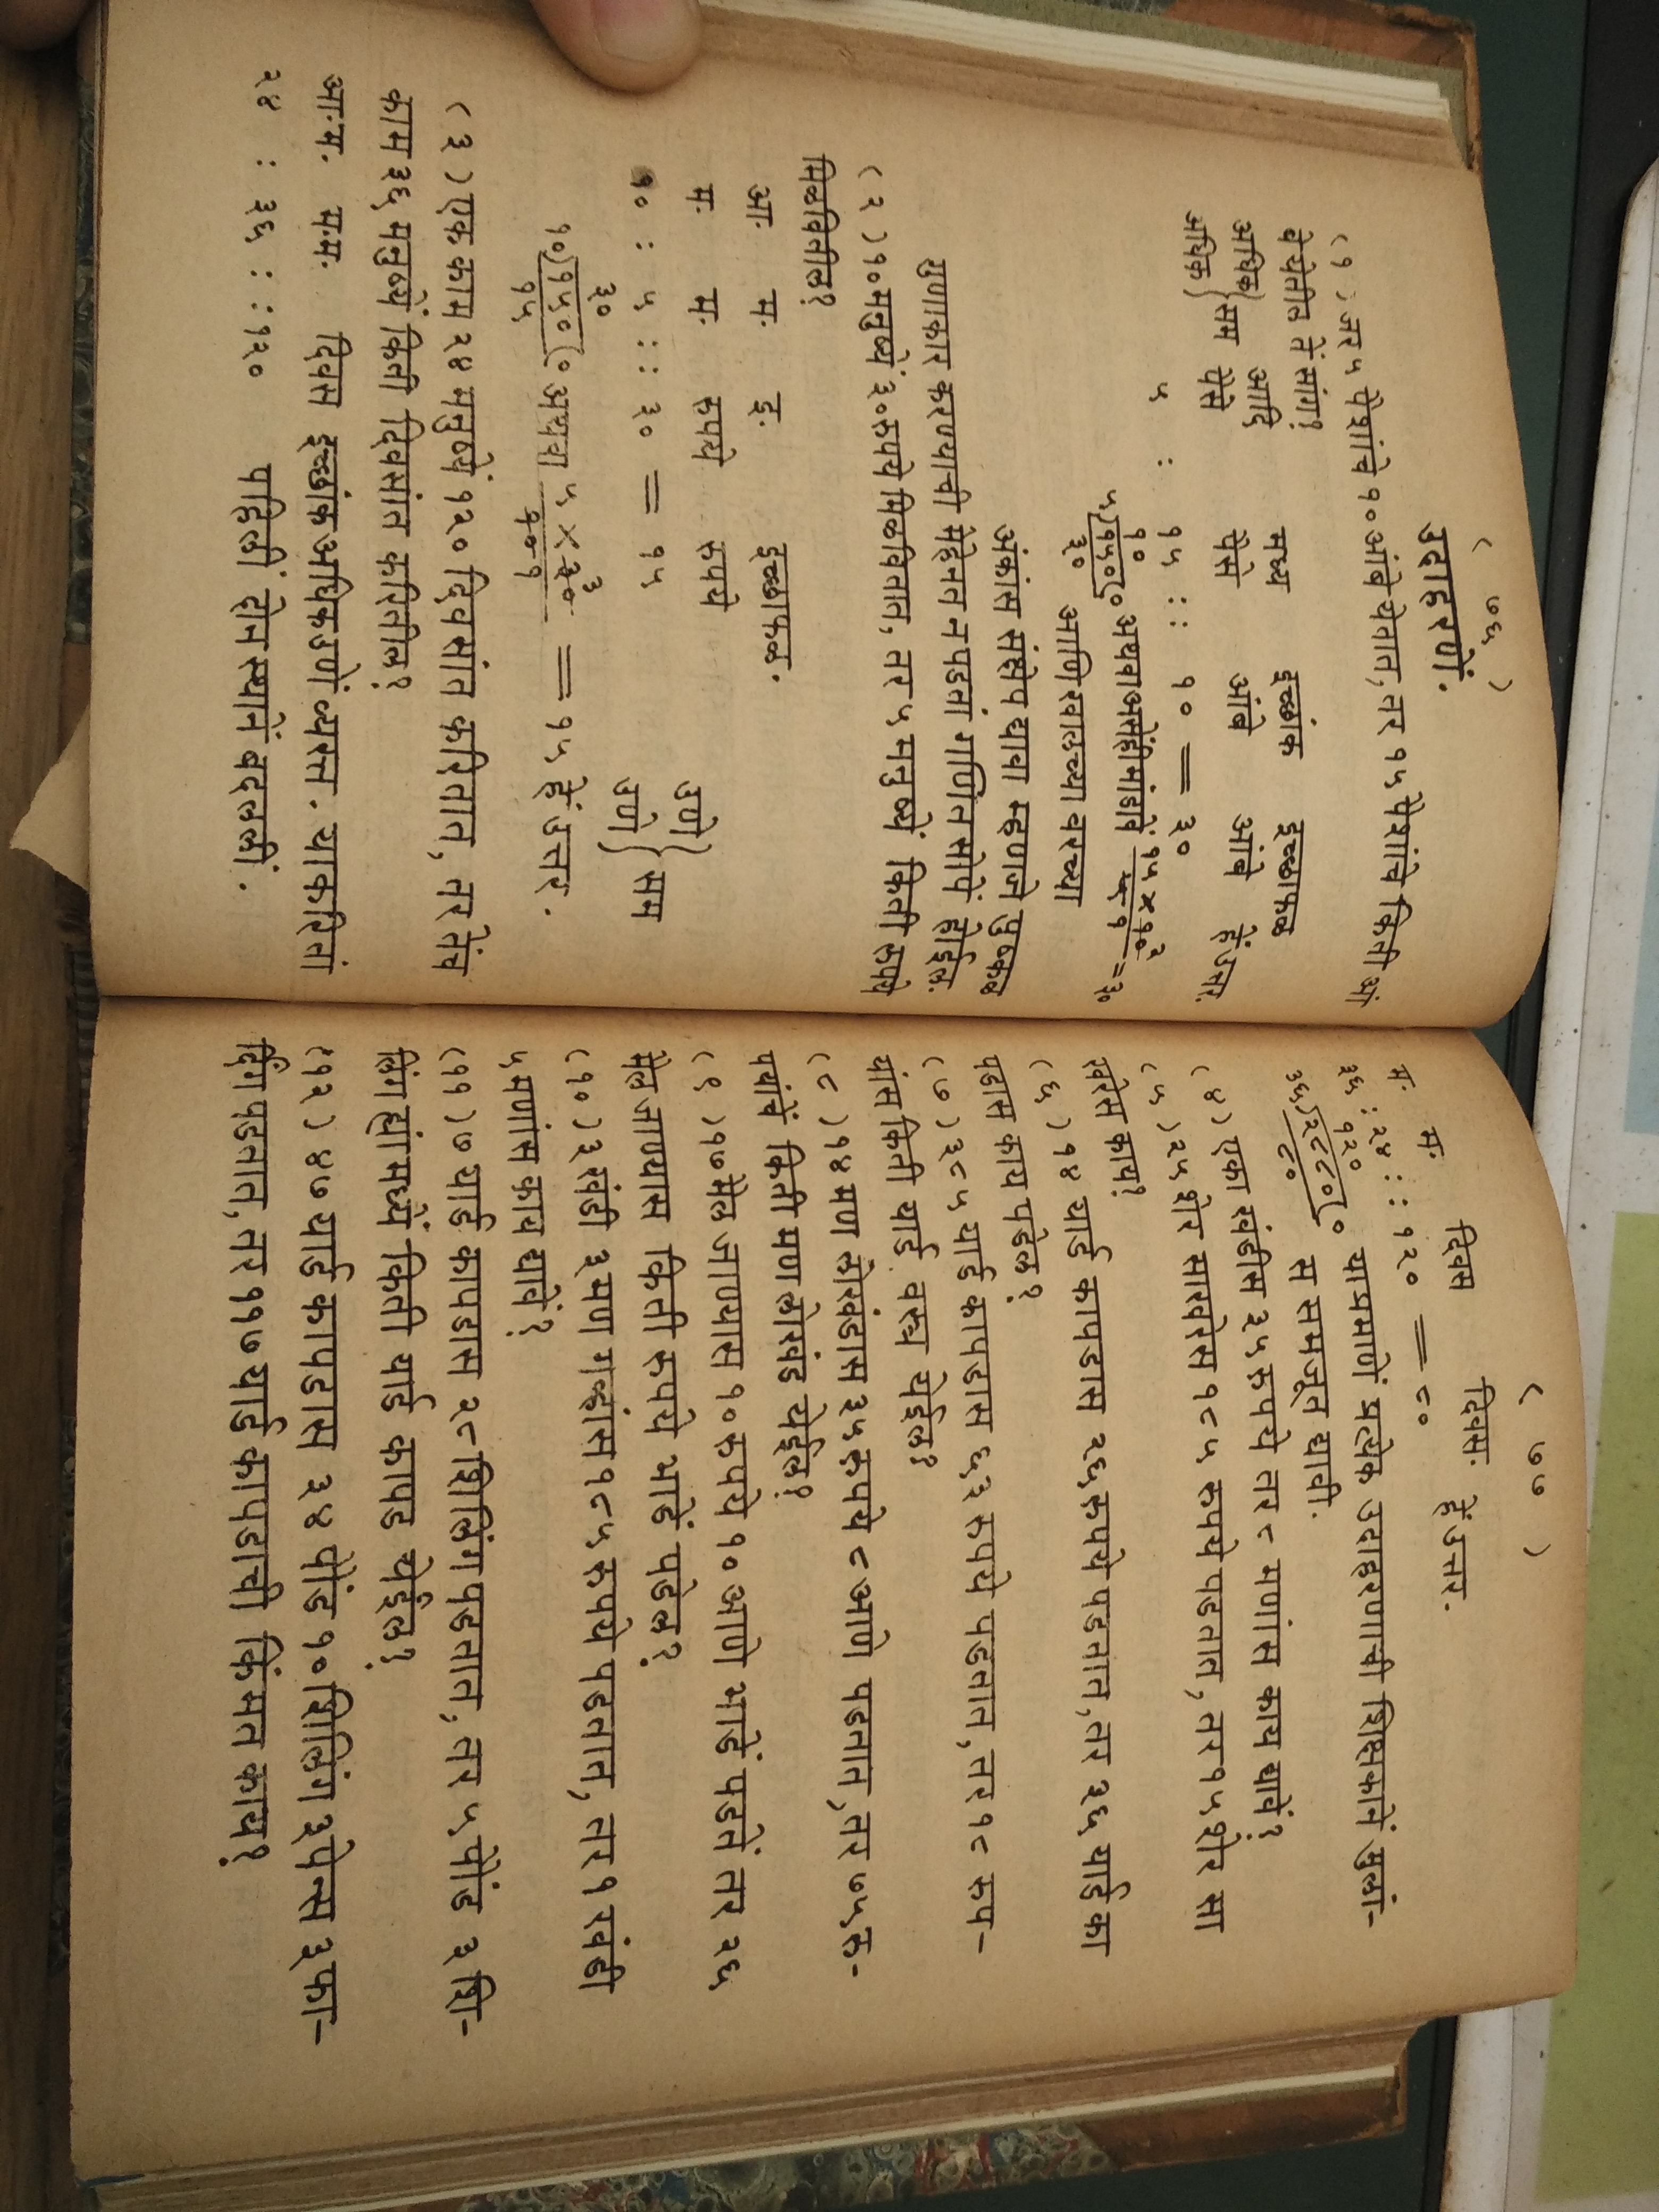 ( ७६ )
उदाहरणें.
( १ ) जर ५ पैशांचे १० आंबे येतात, तर १५ पैशांचे किती आं
बे येतील तें सांग?
अधिक } सम आदि मध्य इच्छांक इच्छाफळ
अधिक } पैसे पैसे आंबे आंबे हें उत्तर.
५ : १५ :: १० = ३०
१०
५)१५०(० अथवा असेंही मांडावें १५ × १०२ / ५ १ = ३०
३० आणि खालच्या वरच्या
अंकांस संक्षेप द्यावा म्हणजे पुष्कळ
गुणाकार करण्याची मेहेनत न पडतां गणित सोपें होईल.
( २ ) १० मनुष्यें ३० रुपये मिळवितात, तर ५ मनुष्यें किती रुपये
मिळवितील?
आ. म. इ. इच्छाफळ.
म. म. रुपये रुपये उणे } सम
१० : ५ :: ३० = १५ उणे }
३०
१०)१५०(० अथवा ५ × ३०३ / १० १ = १५ हें उत्तर.
१५
( ३ ) एक काम २४ मनुष्यें १२० दिवसांत करितात, तर तेंच
काम ३६ मनुष्यें किती दिवसांत करितील?
आ.म. म.म. दिवस इच्छांक अधिक उणें व्यस्त. याकरितां
२४ : ३६ :: १२० पहिलीं दोन स्थानें बदललीं.
( ७७ )
म. म. दिवस दिवस. हें उत्तर.
३६ : २४ :: १२० = ८०
१२०
३६)२८८०(० याप्रमाणें प्रत्येक उदाहरणाची शिक्षकानें मुलां-
८० स समजूत द्यावी.
( ४ ) एका खंडीस ३५ रुपये तर ८ मणांस काय द्यावें?
( ५ ) २५ शेर साखरेस १८५ रुपये पडतात, तर १५ शेर सा
खरेस काय?
( ६ ) १४ यार्ड कापडास २६ रुपये पडतात, तर ३६ यार्ड का
पडास काय पडेल?
( ७ ) ३८५ यार्ड कापडास ६३ रुपये पडतात, तर १८ रुप-
यांस किती यार्ड वस्त्र येईल?
( ८ ) १४ मण लोखंडास ३५ रुपये ८ आणे पडतात, तर ७५ रु-
पयांचें किती मण लोखंड येईल?
( ९ ) १७ मैल जाण्यास १० रुपये १० आणे भाडें पडतें तर २६
मैल जाण्यास किती रुपये भाडें पडेल?
( १० ) ३ खंडी ३ मण गव्हांस १८५ रुपये पडतात, तर १ खंडी
५ मणांस काय द्यावें?
( ११ ) ७ यार्ड कापडास २८ शिलिंग पडतात, तर ५ पौंड ३ शि-
लिंग ह्यांमध्यें किती यार्ड कापड येईल?
( १२ ) ४७ यार्ड कापडास ३४ पौंड १० शिलिंग ३ पेन्स ३ फा-
र्दिंग पडतात, तर ११७ यार्ड कापडाची किंमत काय?